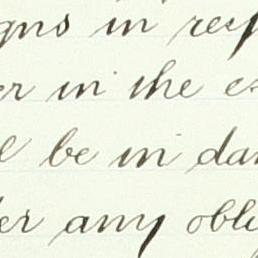 gns in resp
er in the es
l be in dan
er any obli